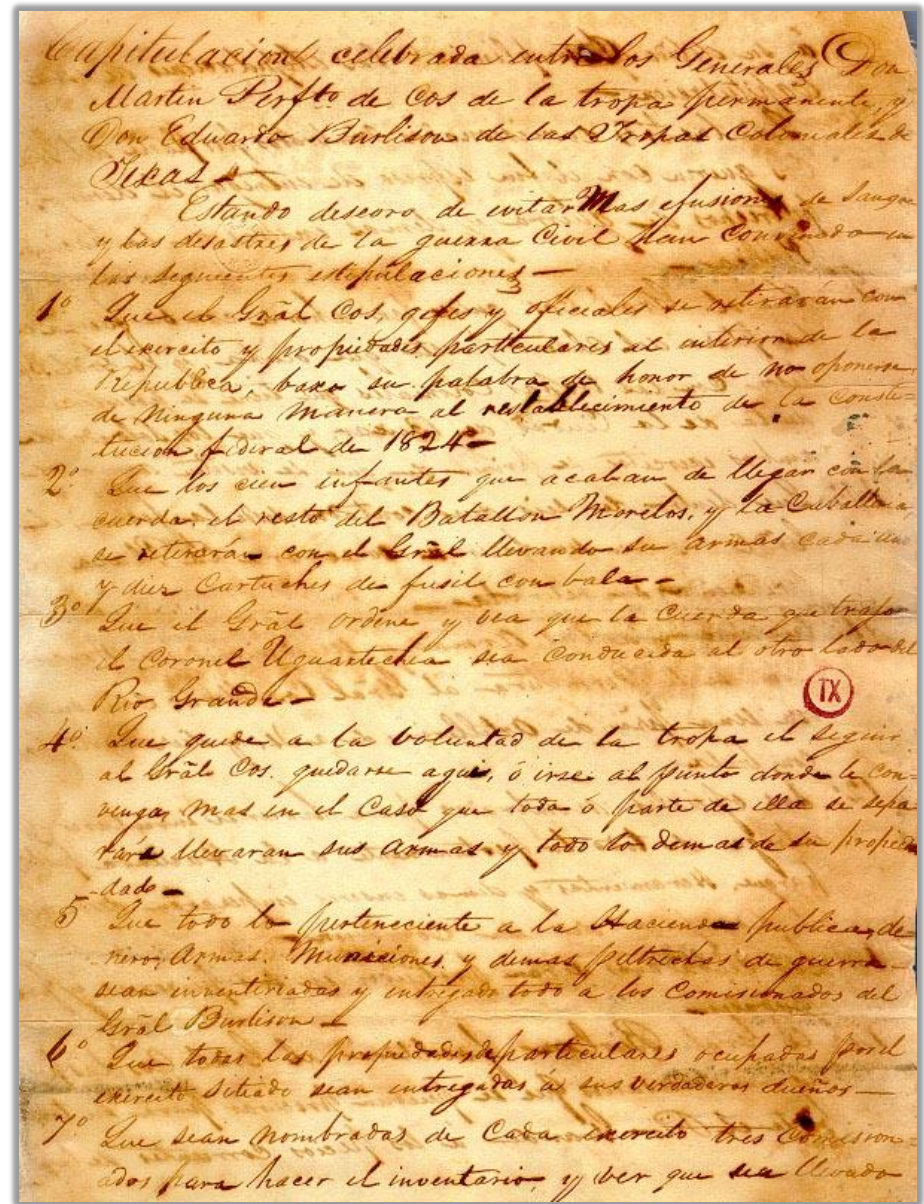 Capitulacion celebrada entre los Generales Don
Martin Perfto de Cos de la tropa permanente, y
Don Eduardo Burlison de las Tropas Coloniales de
Texas —
Estando deseoro de evitar Mas efusiones de Sangre
y las desastres de la guerra Civil han Convinado en
las seguientes estipulaciones —
1º Que el Grãl Cos, gefes y oficiales se retirarán con
el exercito y propiedades particulares al interior de la
Republica, baxo su palabra de honor de no oponerse
de Ninguna Manera al restablecimiento de la Conste-
tucion federal de 1824 —
2º Que los cien infantes que acaban de llegar con la
cuerda, el resto del Batallon Morelos, y la Caballeria
se retirarán con el Grãl llevando su armas cada uno
y diez Cartuches de fusil con bala —
3º Que el Grãl ordene y vea que la Cuerda que trajo
el Coronel Uguartechea sea Conducida al otro lado del
Rio Grande —
TX
4º Que quede a la voluntad de la tropa el seguir
al Grãl Cos. quedarse aqui, ó irse al punto donde le Con=
venga, mas en el Caso que toda ó parte de ella se sepa
rare llevaran sus Armas y todo lo demas de su propie
-dad —
5 Que todo lo perteneciente a la Hacienda publica, de
nero, Armas. Municiones, y demas piltrechas de guerra
sean inventiriadas y entregado todo a los Comisionados del
Grãl Burlison —
6º Que todas las propiedades de particulares ocupadas por el
exercito Sitiado sean entregadas á sus verdaderos dueños —
7º Que sean Nombradas de Cada exercito tres Comission-
ados para hacer el inventario, y ver que sea llevado